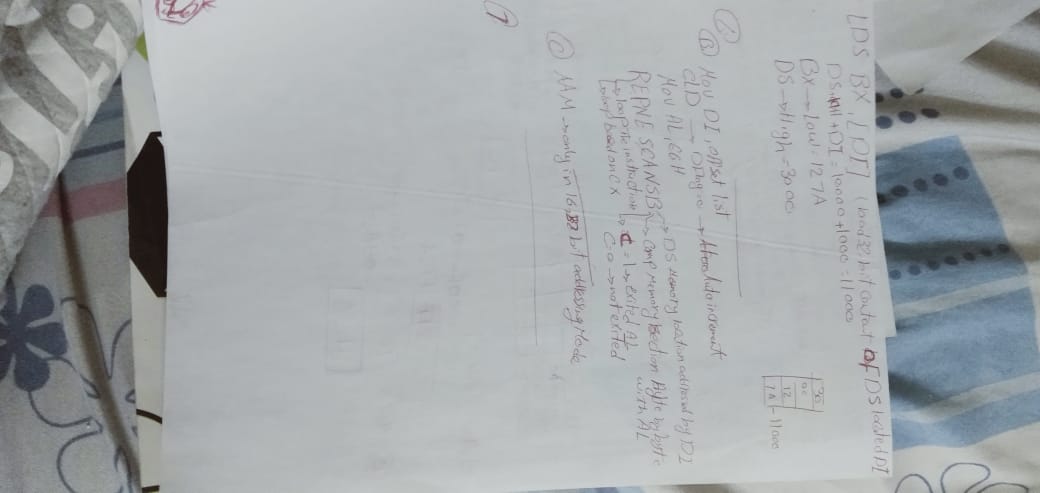 LDS BX, [DI] (load 32 bit content OF DS located DI
DS + DI = 10000 + 1000 = 11000
BX → Low = 127A
DS → High = 3000
30
00
12
7A - 11000
(B) Mov DI, offset list
CLD → DFlag=0 → Auto increment
Mov AL, 66H
REPNE SCANSB → DS Memory location addressed by DI
→ Comp Memory Section Byte by byte with AL
↳ loop the instruction
↳ loop based on CX
C=1 → exited AL
C=0 → not exited
(C) AAM → only in 16, 32 bit addressing Mode
(7)